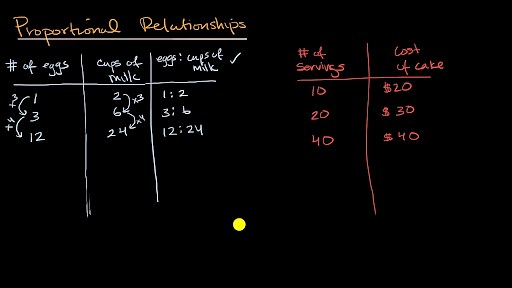 Proportional Relationships
# of eggs cups of milk eggs: cups of milk ✓
×3 1 2 ×3 1:2
×4 3 6 ×4 3:6
12 24 12:24
# of servings cost of cake
10 $20
20 $30
40 $40